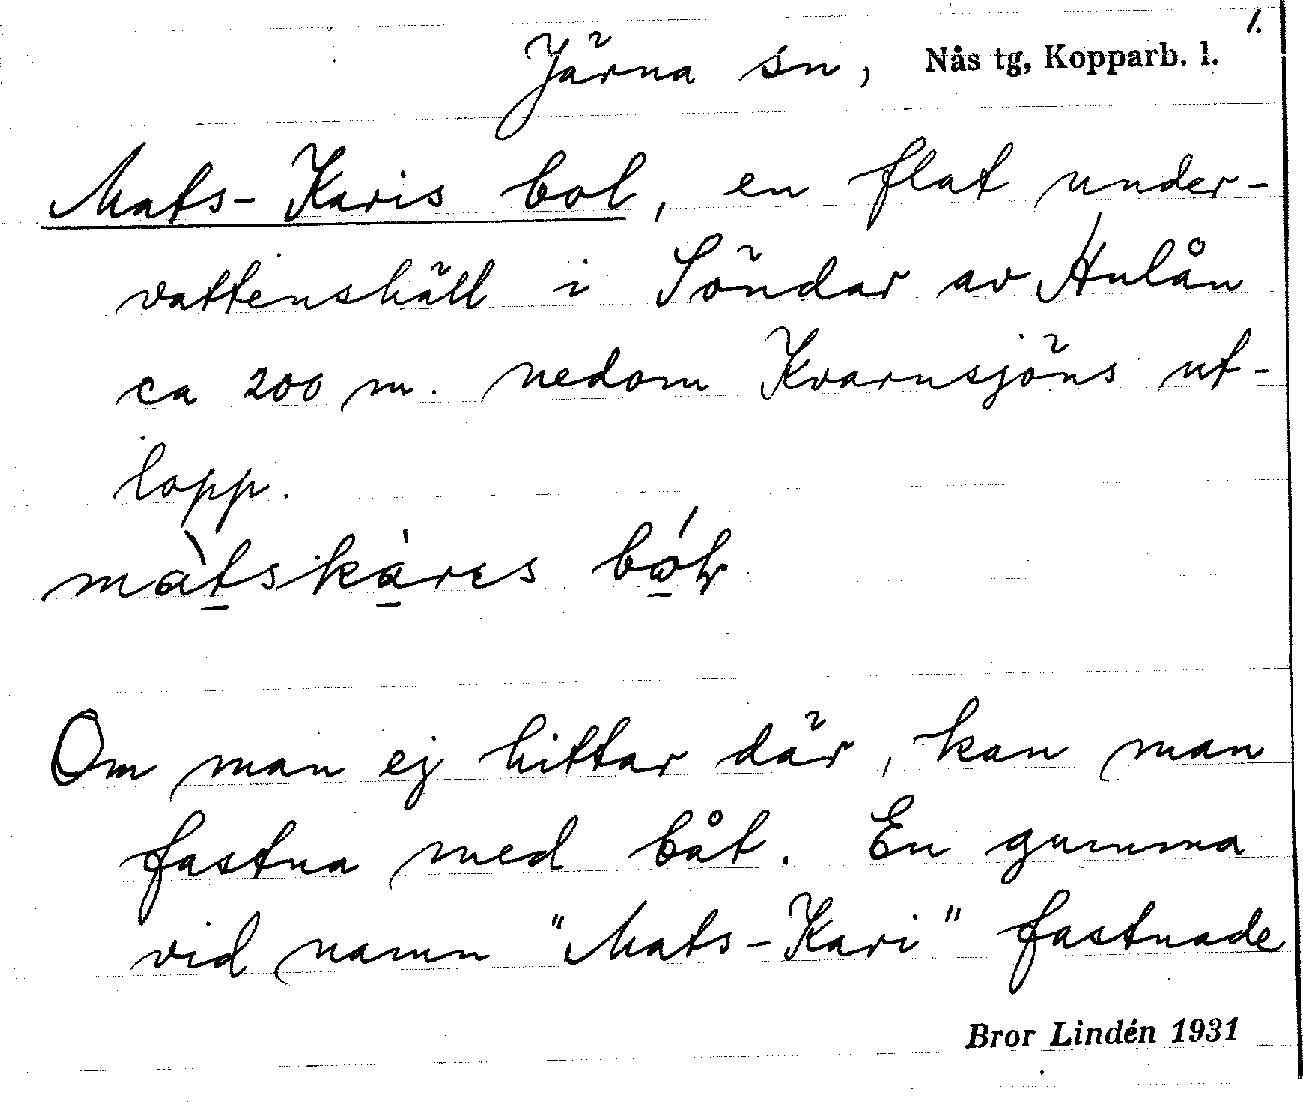 1.
Järna sn, Nås tg, Kopparb. l.
Mats-Karis bol, en flat under-
vattenshäll i Söndar av Hulån
ca 200 m. nedom Kvarnsjöns ut-
lopp.
Om man ej hittar där, kan man
fastna med båt. En gumma
vid namn "Mats-Kari" fastnade
Bror Lindén 1931